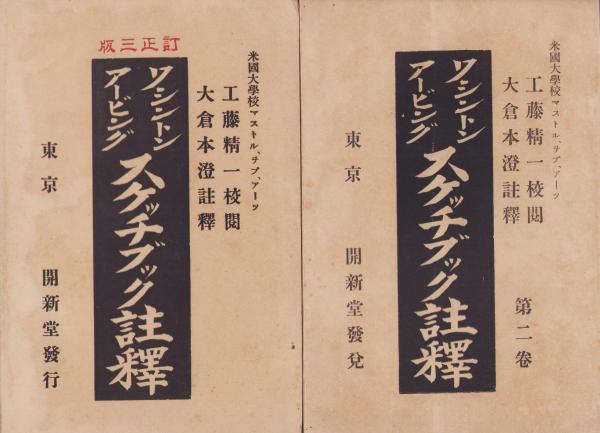 訂正三版
米國大學校マストル、ヲブ、アーツ
工藤精一校閲
大倉本澄註釋
ワシントン
アービング
スケッチブック註釋
東京 開新堂發行
米國大學校マストル、ヲブ、アーツ
工藤精一校閲
大倉本澄註釋
第二卷
ワシントン
アービング
スケッチブック註釋
東京 開新堂發兌